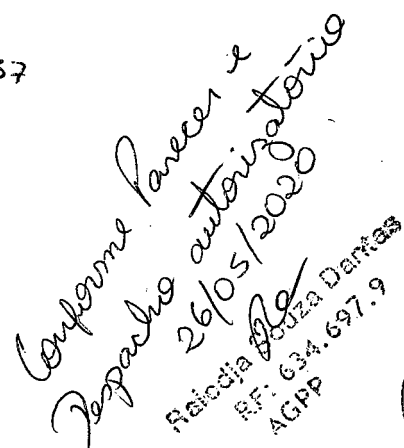 57
Conforme Parecer e
Despacho autorizatório
26/05/2020
Souza Dantas
RF: 634.697.9
AGPP